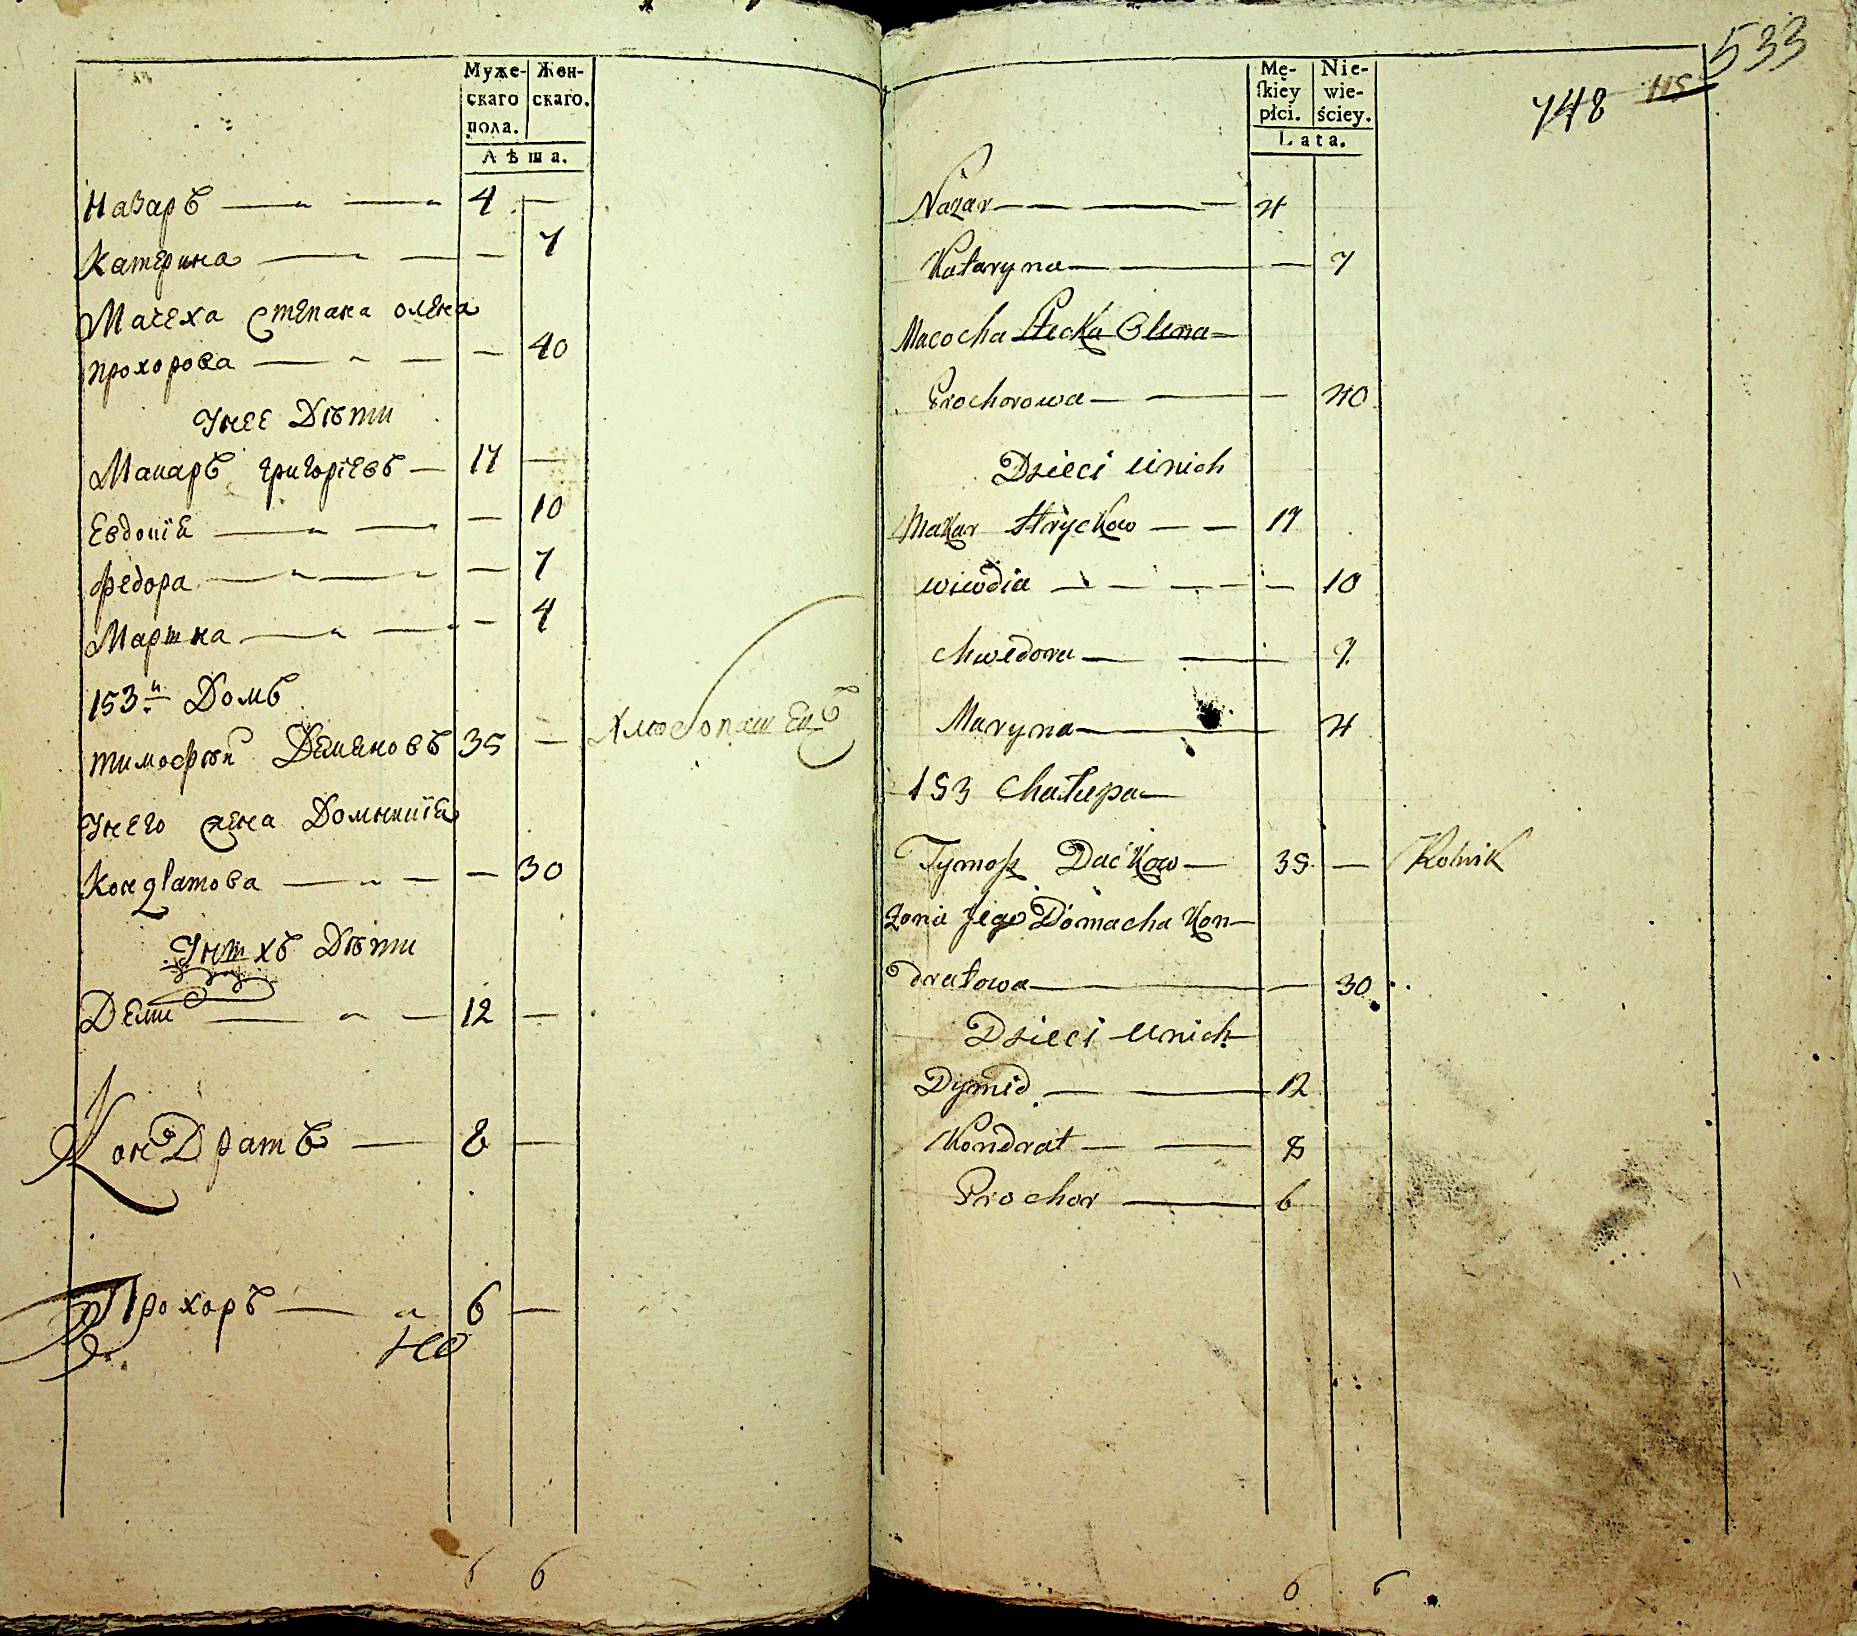 Муже-
скаго
пола.
Жен-
скаго.
Лѣта.
Назаръ 4 —
Катерина — 7
Мачеха Степана олена
прохорова — 40
Унее Дѣти
Макаръ григорїевъ — 17 —
Евдокїа — 10
федора — 7
Мартна — 4
153й Домъ
тимофѣй Демяновъ 35 — Хлѣбопашецъ
Унего жена Домникїа
Кондратова — 30
Унихъ Дѣти
Деми 12 —
КонДратъ — 8 —
Прохоръ — 6 —
533
115
748
Mę-
ſkiey
płci.
Nie-
wie-
ściey.
Lata.
Nazar 4
Kataryna — 7
Macocha Stecka Olena
Prochorowa — 40
Dzieci unich
Makar Hryckow — 17
wiwdia — 10
chwedora — 7
Maryna — 4
153 Chałupa
Tymosz Dackow — 35 — Rolnik
żona jego Domacha Kon-
dratowa — 30
Dzieci unich
Dymid — 12
Kondrat — 8
Prochor — 6
6 6
6 6